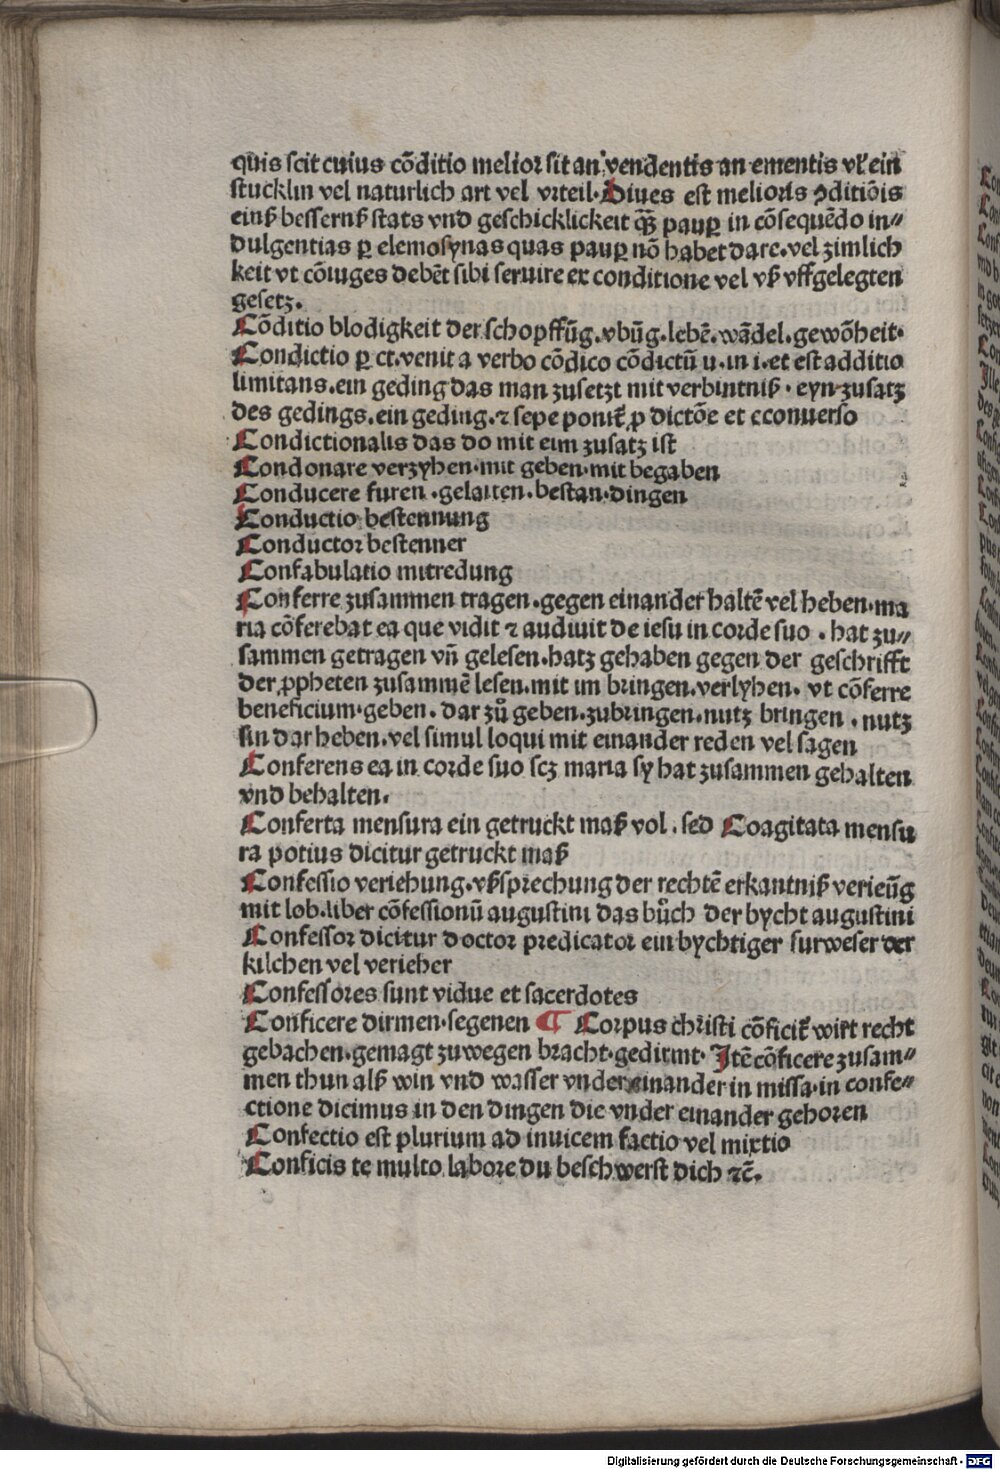 quis scit cuius cōditio melior sit an vendentis an ementis vl' ein
stucklin vel naturlich art vel vrteil. Diues est melioris ꝯditiōis
einß bessernß stats vnd geschicklickeit qȝ̄ paup̲ in cōsequēdo in⸗
dulgentias ꝑ elemosynas quas paup̲ nō habet dare. vel zimlich
keit vt cōiuges debēt sibi seruire ex conditione vel vß vffgelegten
gesetz.
Cōditio blodigkeit der schopffūg. vbūg. lebē. wādel. gewōheit.
Condictio ꝑ ct. venit a verbo cōdico cōdictū u. in i. et est additio
limitans. ein geding das man zusetzt mit verbintniß. eyn zusatz
des gedings. ein geding. ⁊ sepe ponit᷑ ꝓ dictōe et econuerso
Condictionalis das do mit eim zusatz ist
Condonare verzyhen. mit geben. mit begaben
Conducere furen. gelaiten. bestan. dingen
Conductio bestennung
Conductor bestenner
Confabulatio mitredung
Conferre zusammen tragen. gegen einander haltē vel heben. ma
ria cōferebat ea que vidit ⁊ audiuit de iesu in corde suo. hat zu⸗
sammen getragen vn̄ gelesen. hatz gehaben gegen der geschrifft
der ꝓpheten zusammē lesen. mit im bringen. verlyhen. vt cōferre
beneficium. geben. dar zů geben. zubringen. nutz bringen. nutz
sin dar heben. vel simul loqui mit einander reden vel sagen
Conferens ea in corde suo scz maria sy hat zusammen gehalten
vnd behalten.
Conferta mensura ein getruckt maß vol. sed Coagitata mensu
ra potius dicitur getruckt maß
Confessio veriehung. vßsprechung der rechtē erkantniß verieūg
mit lob. liber cōfessionū augustini das bůch der bycht augustini
Confessor dicitur doctor predicator ein bychtiger furweser der
kilchen vel verieher
Confessores sunt vidue et sacerdotes
Conficere dirmen. segenen ¶ Corpus christi cōficit᷑ wirt recht
gebachen. gemagt zuwegen bracht. gedirmt. Itē cōficere zusam⸗
men thun alß win vnd wasser vnder einander in missa. in confe⸗
ctione dicimus in den dingen die vnder einander gehoren
Confectio est plurium ad inuicem factio vel mixtio
Conficis te multo labore du beschwerst dich ⁊c̄.
Digitalisierung gefördert durch die Deutsche Forschungsgemeinschaft - DFG